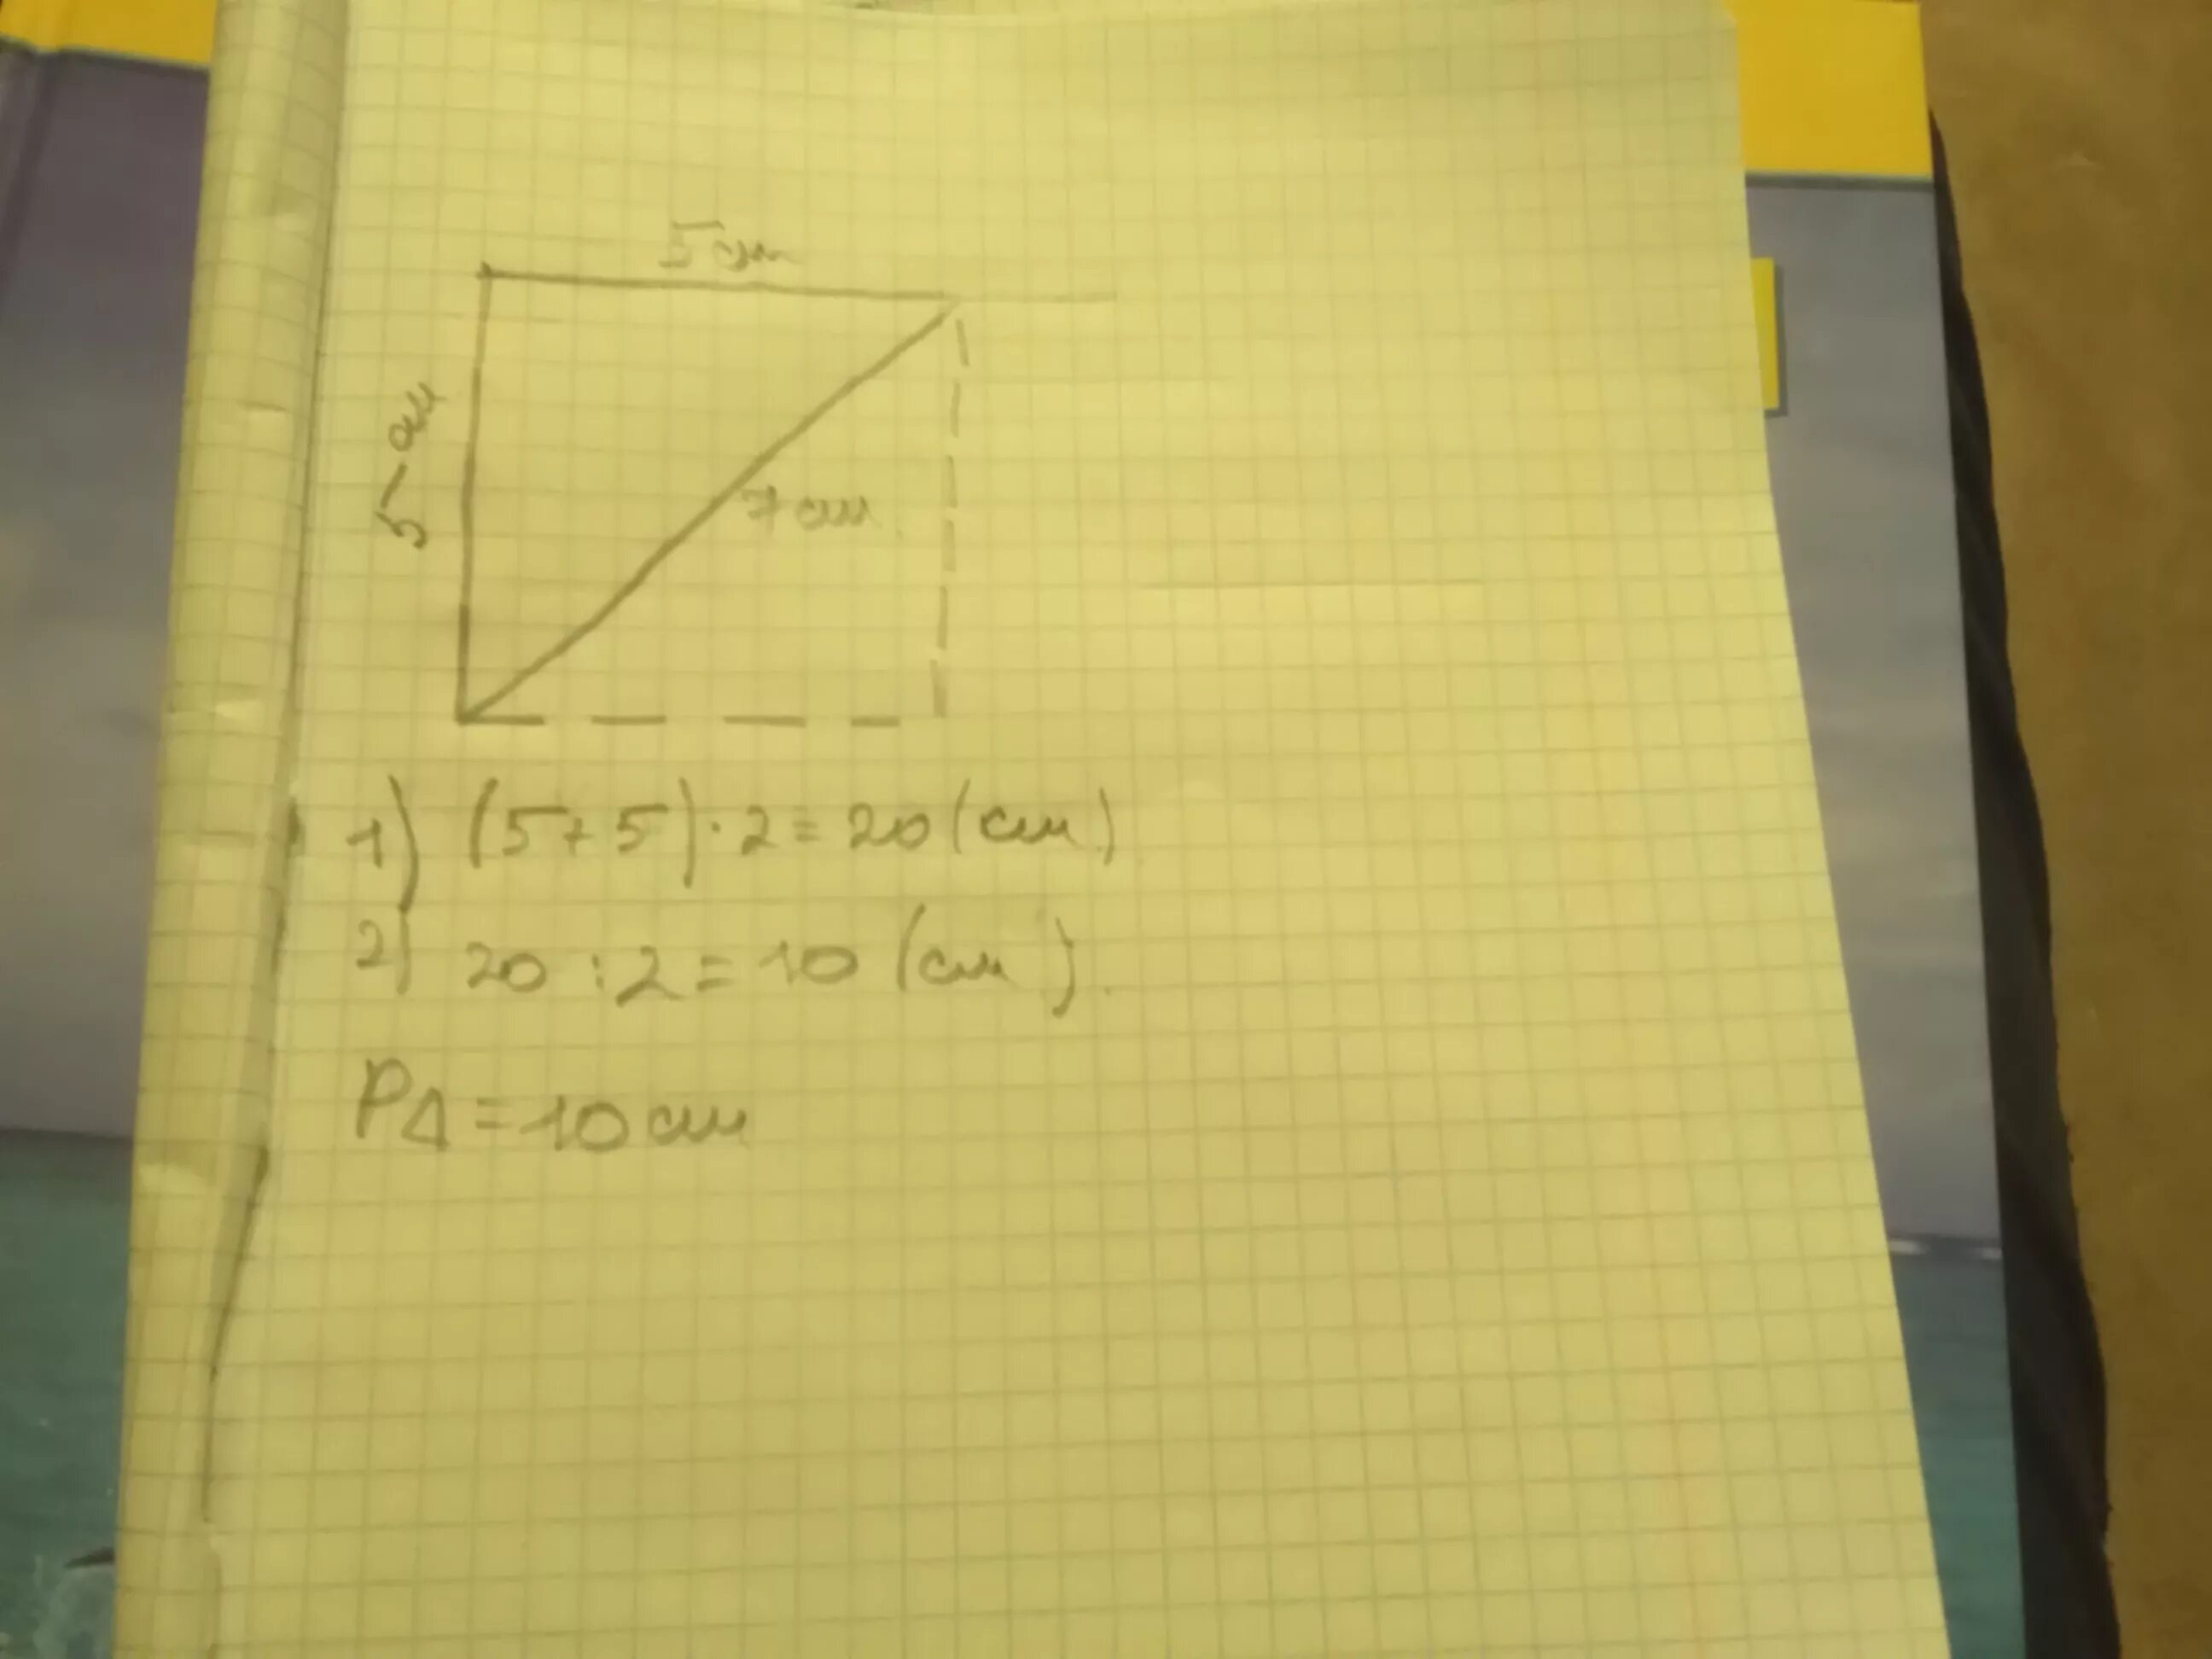 5 см
5 см
7 см
1) (5+5)·2=20(см)
2) 20:2=10(см).
PΔ=10см